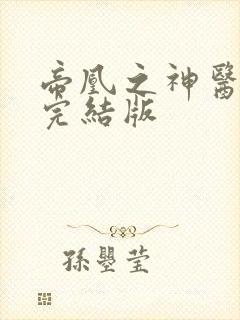 帝凰之神醫
完結版
孫曌莹